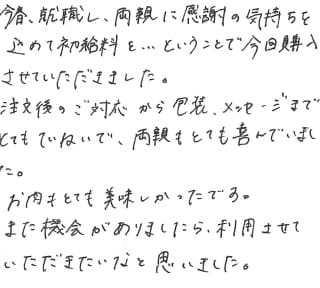 今春、就職し、両親に感謝の気持ちを
込めて初給料を…ということで今回購入
させていただきました。
注文後のご対応から包装、メッセージまで
とてもていねいで、両親もとても喜んでいまし
た。
お肉もとても美味しかったです。
また機会がありましたら、利用させて
いただきたいなと思いました。